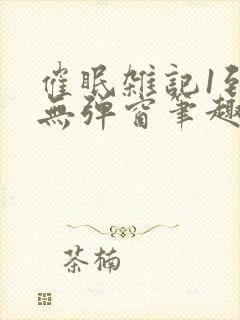 催眠雑記1至
無弹窗筆趣
茶楠